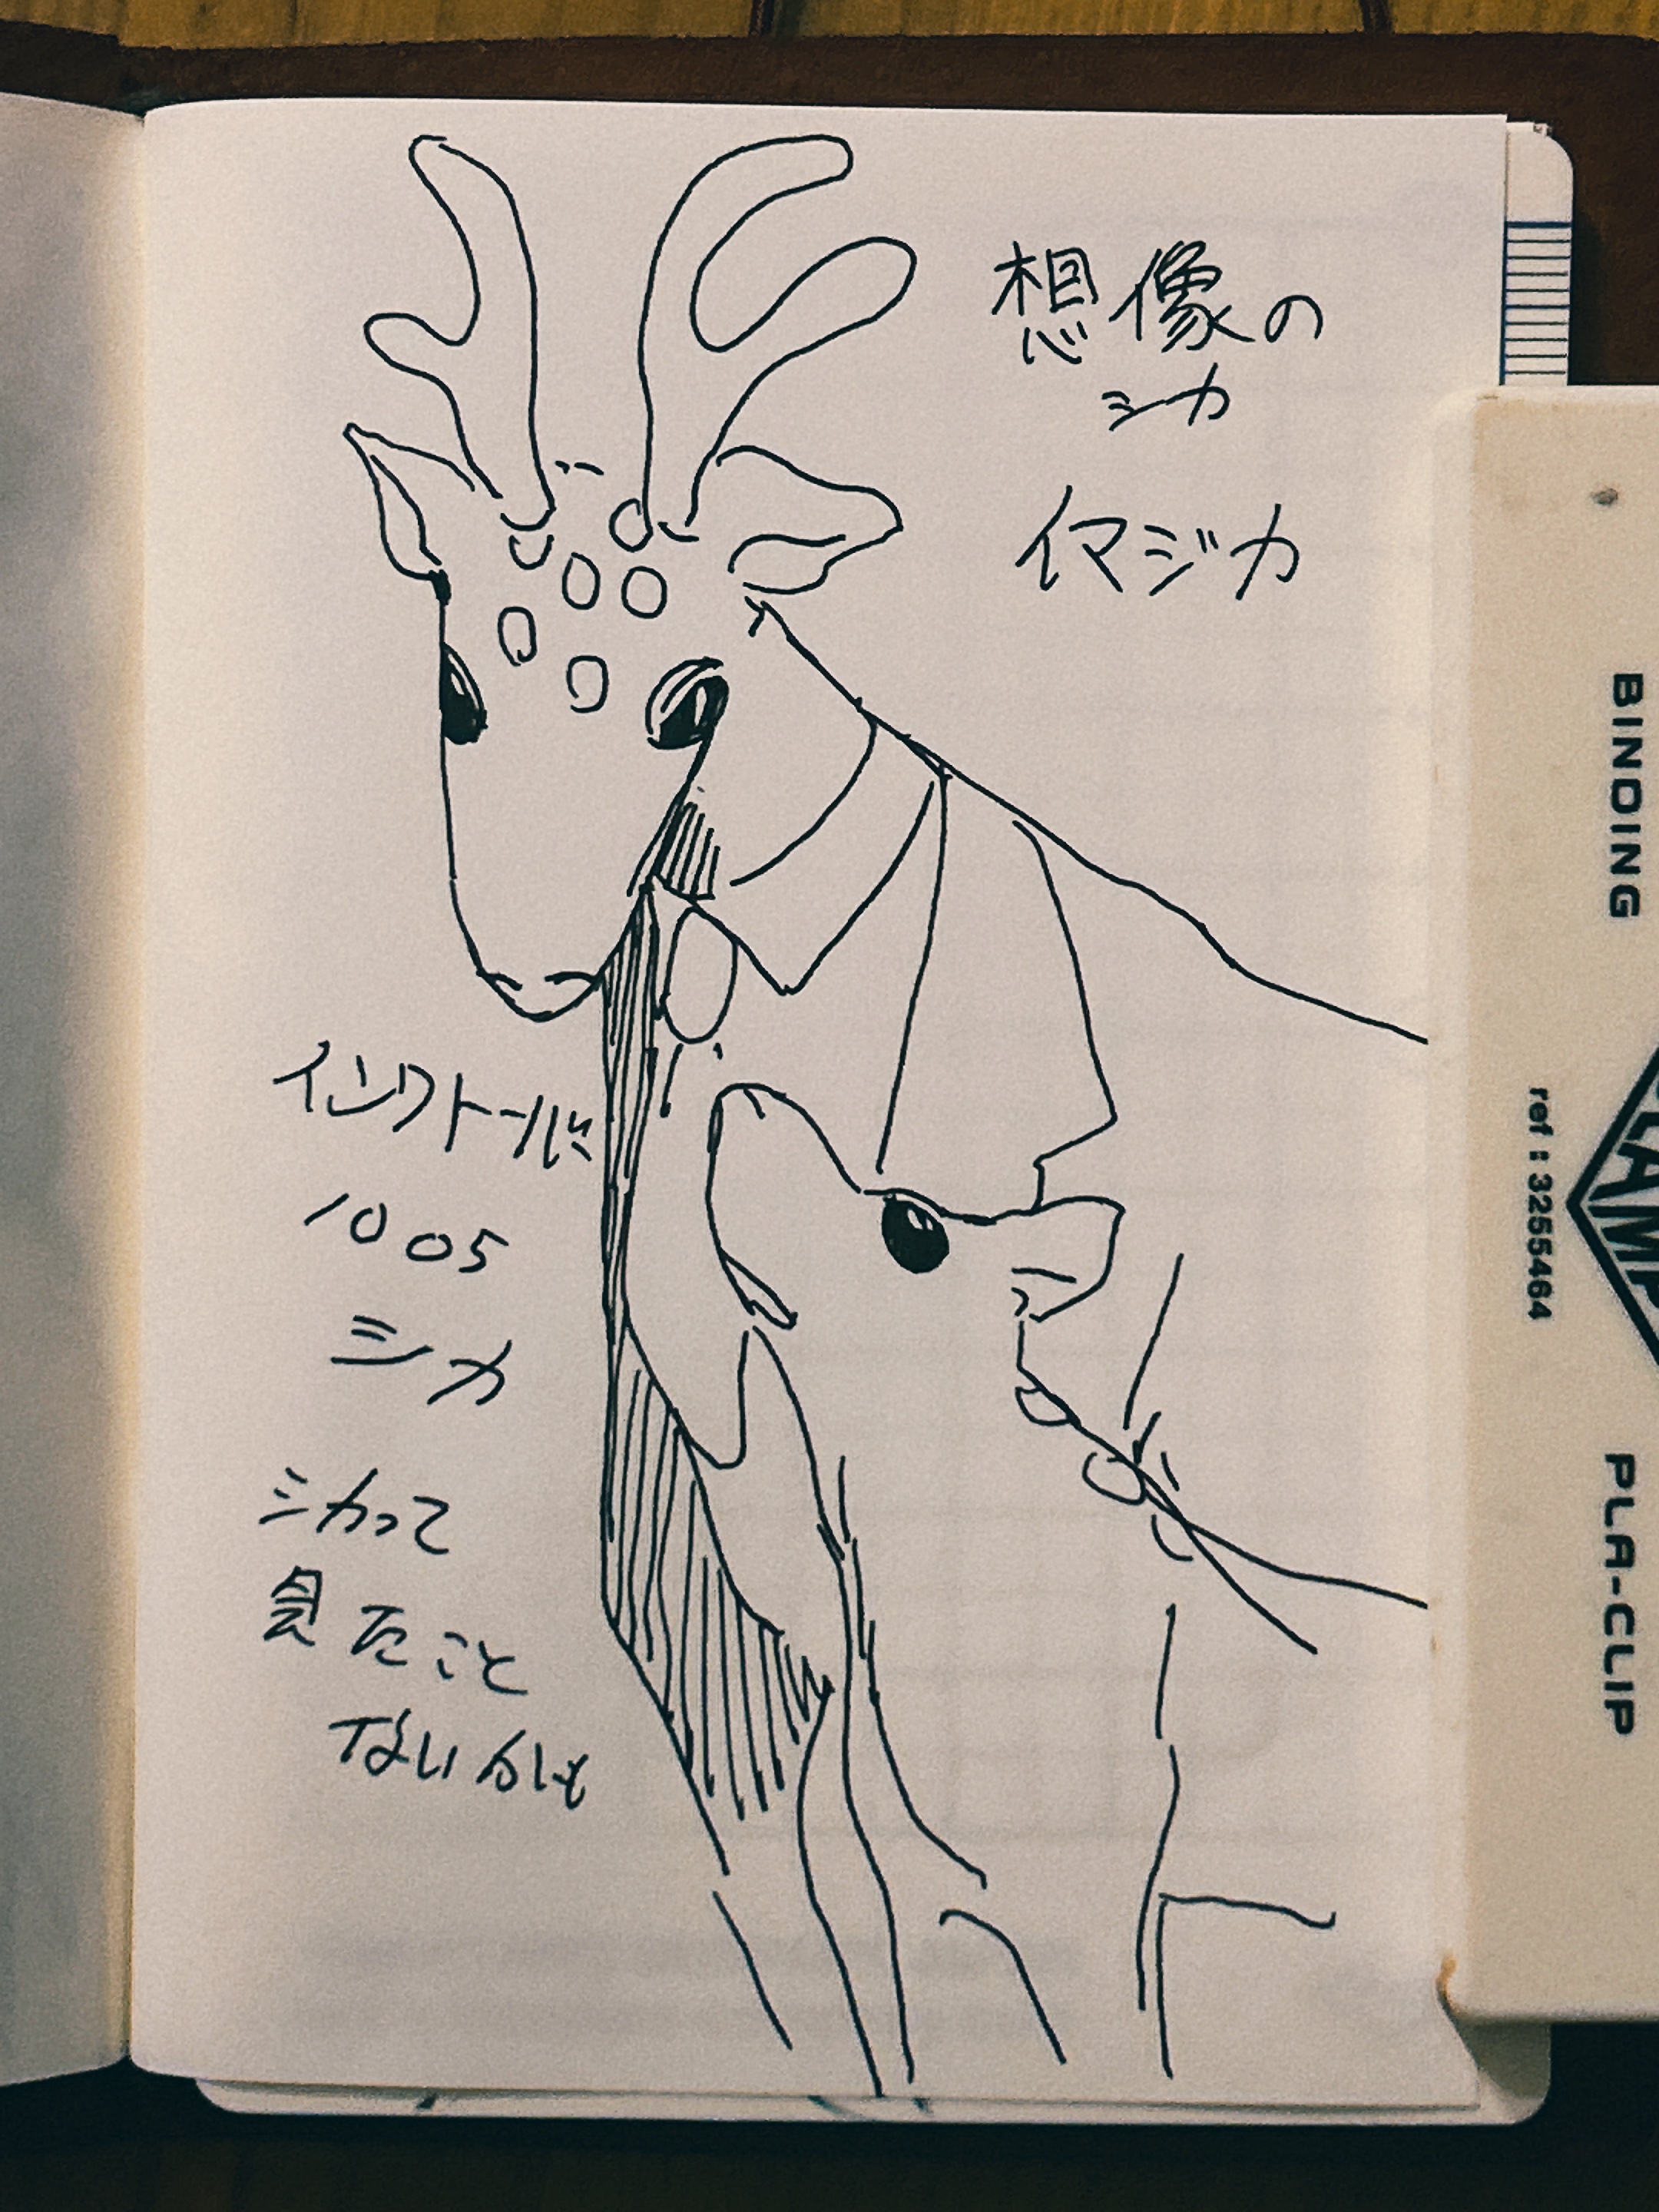 想像の
シカ
イマジカ
インクトーバー
1005
シカ
シカって
見たこと
ないかも
BINDING
PLA-CLIP
ref : 3255464